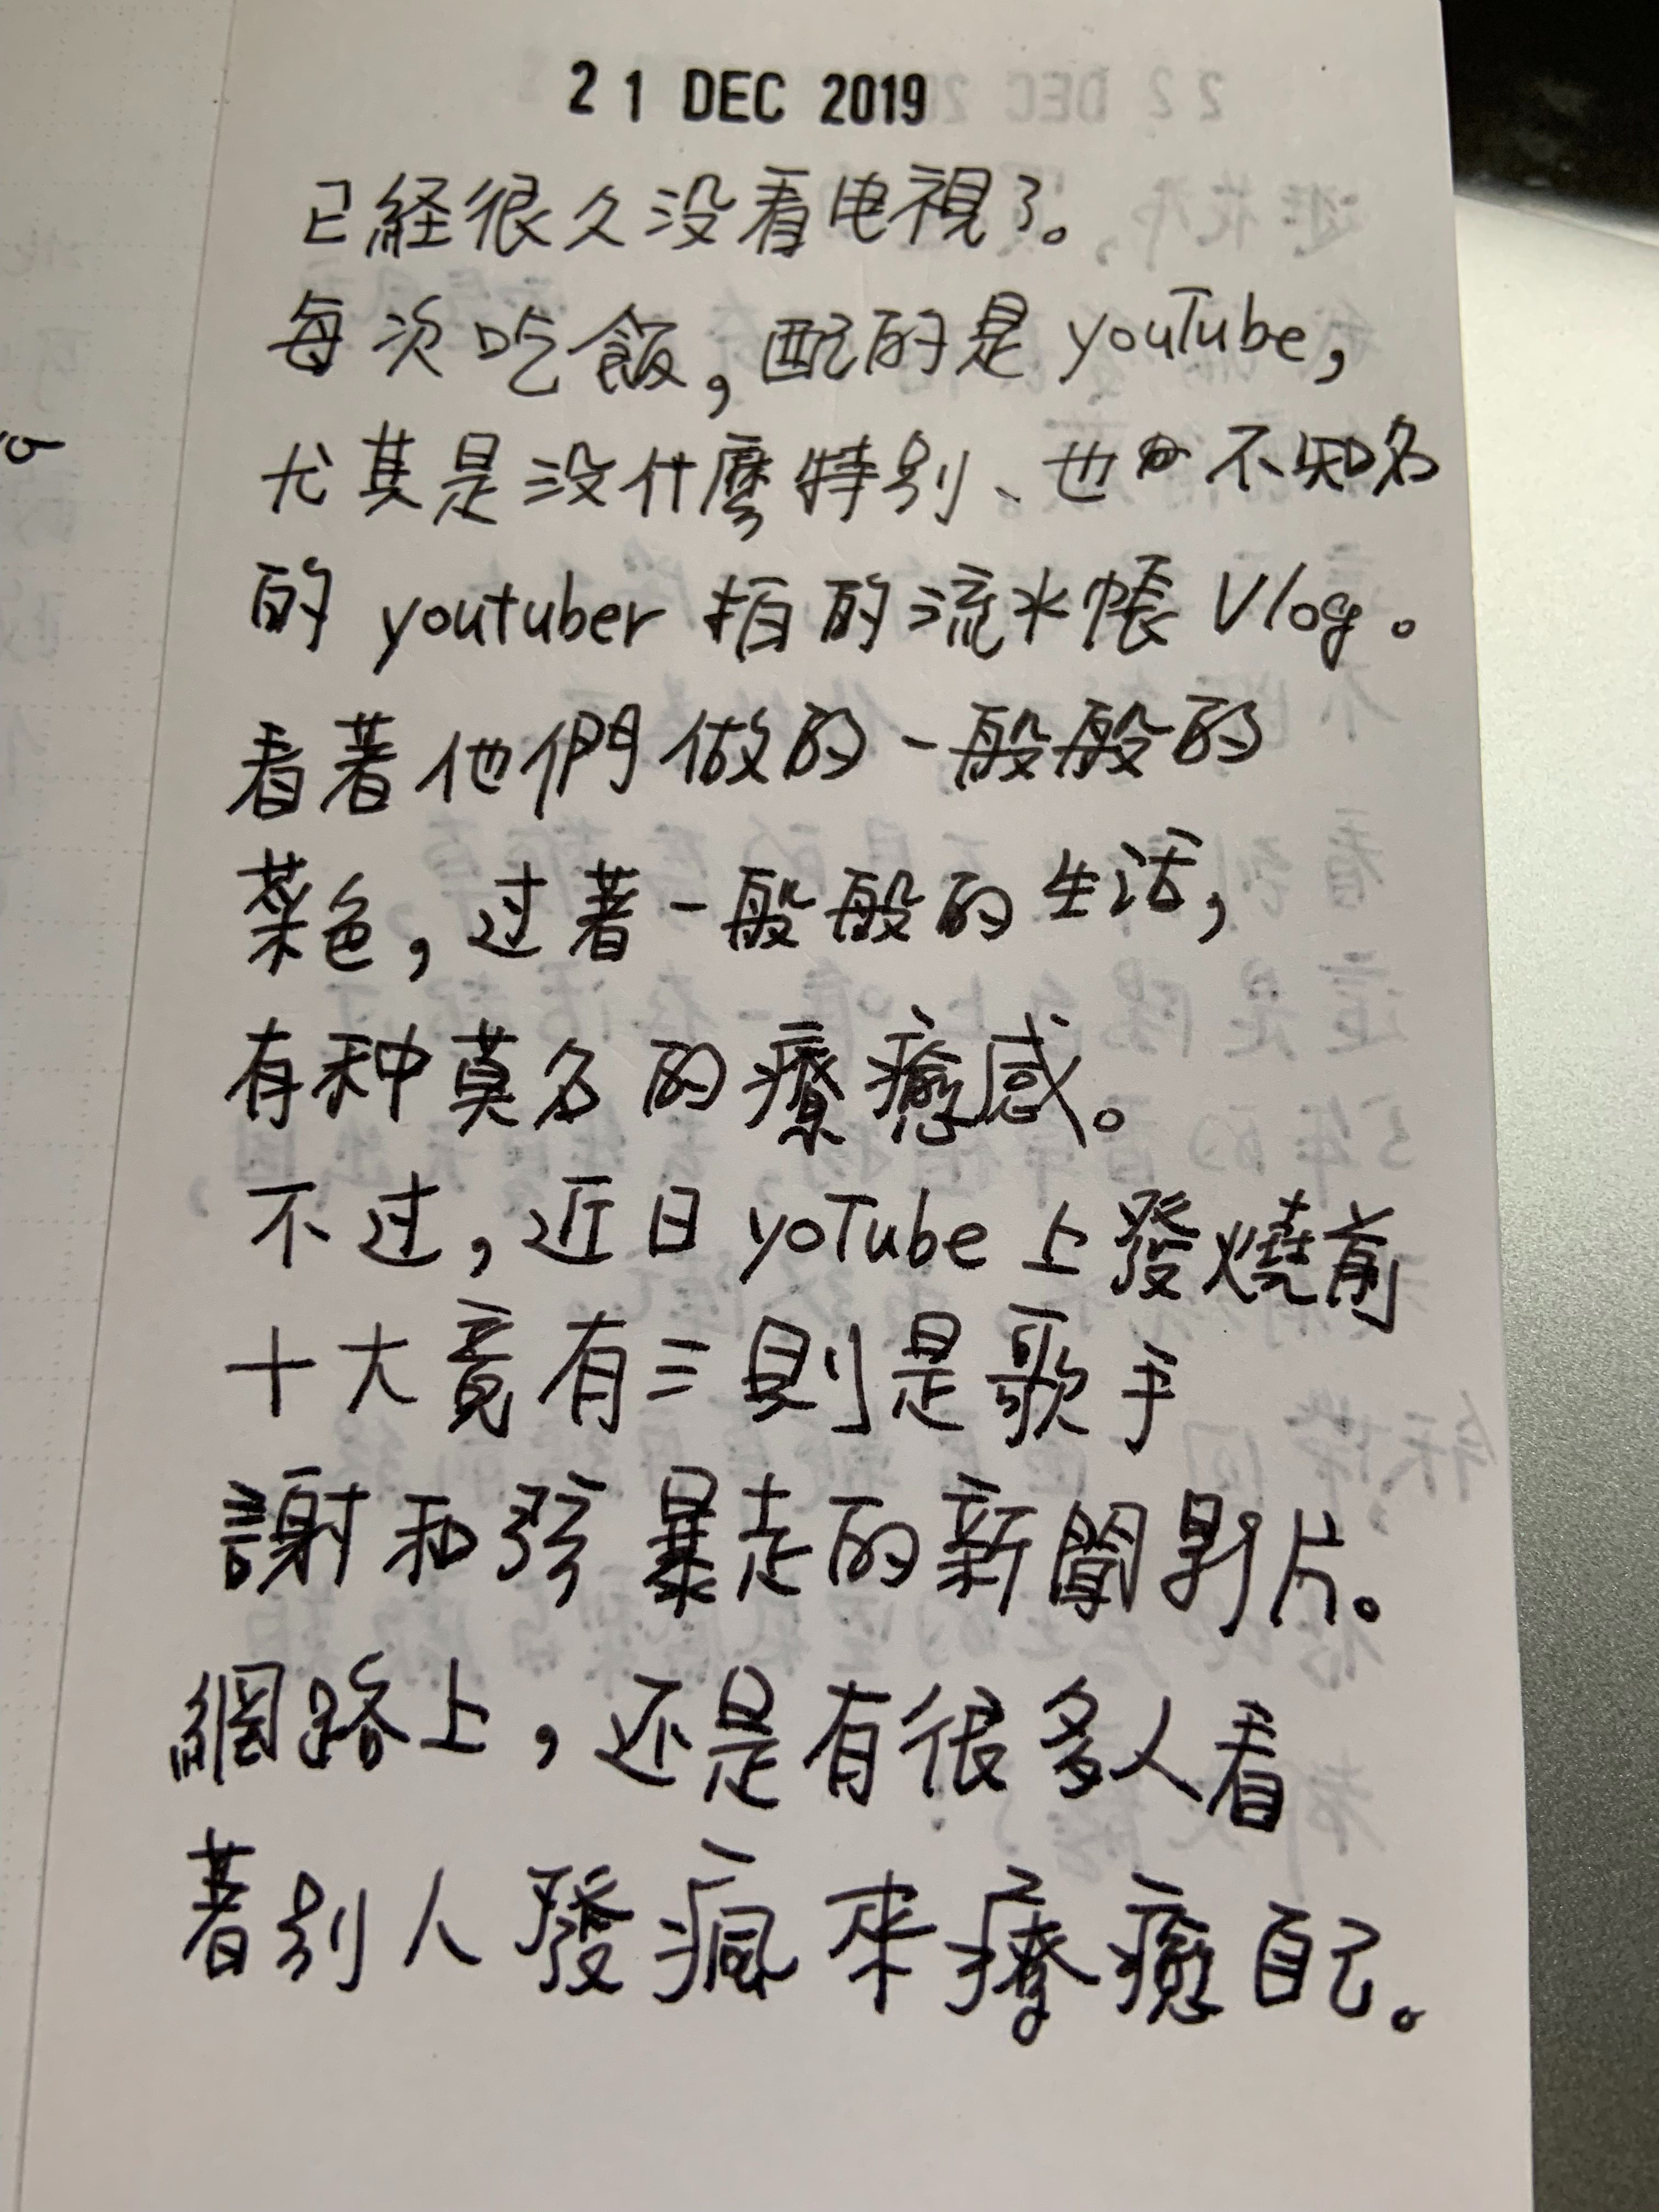 21 DEC 2019
已経很久没看电視了。
每次吃飯，配的是youTube，
尤其是没什麼特别、也不知名
的youtuber拍的流水帳Vlog。
看著他們做的一般般的
菜色，过著一般般的生活，
有种莫名的療癒感。
不过，近日yoTube上發燒前
十大竟有三則是歌手
謝和弦暴走的新聞影片。
網路上，还是有很多人看
著别人發瘋来療癒自己。